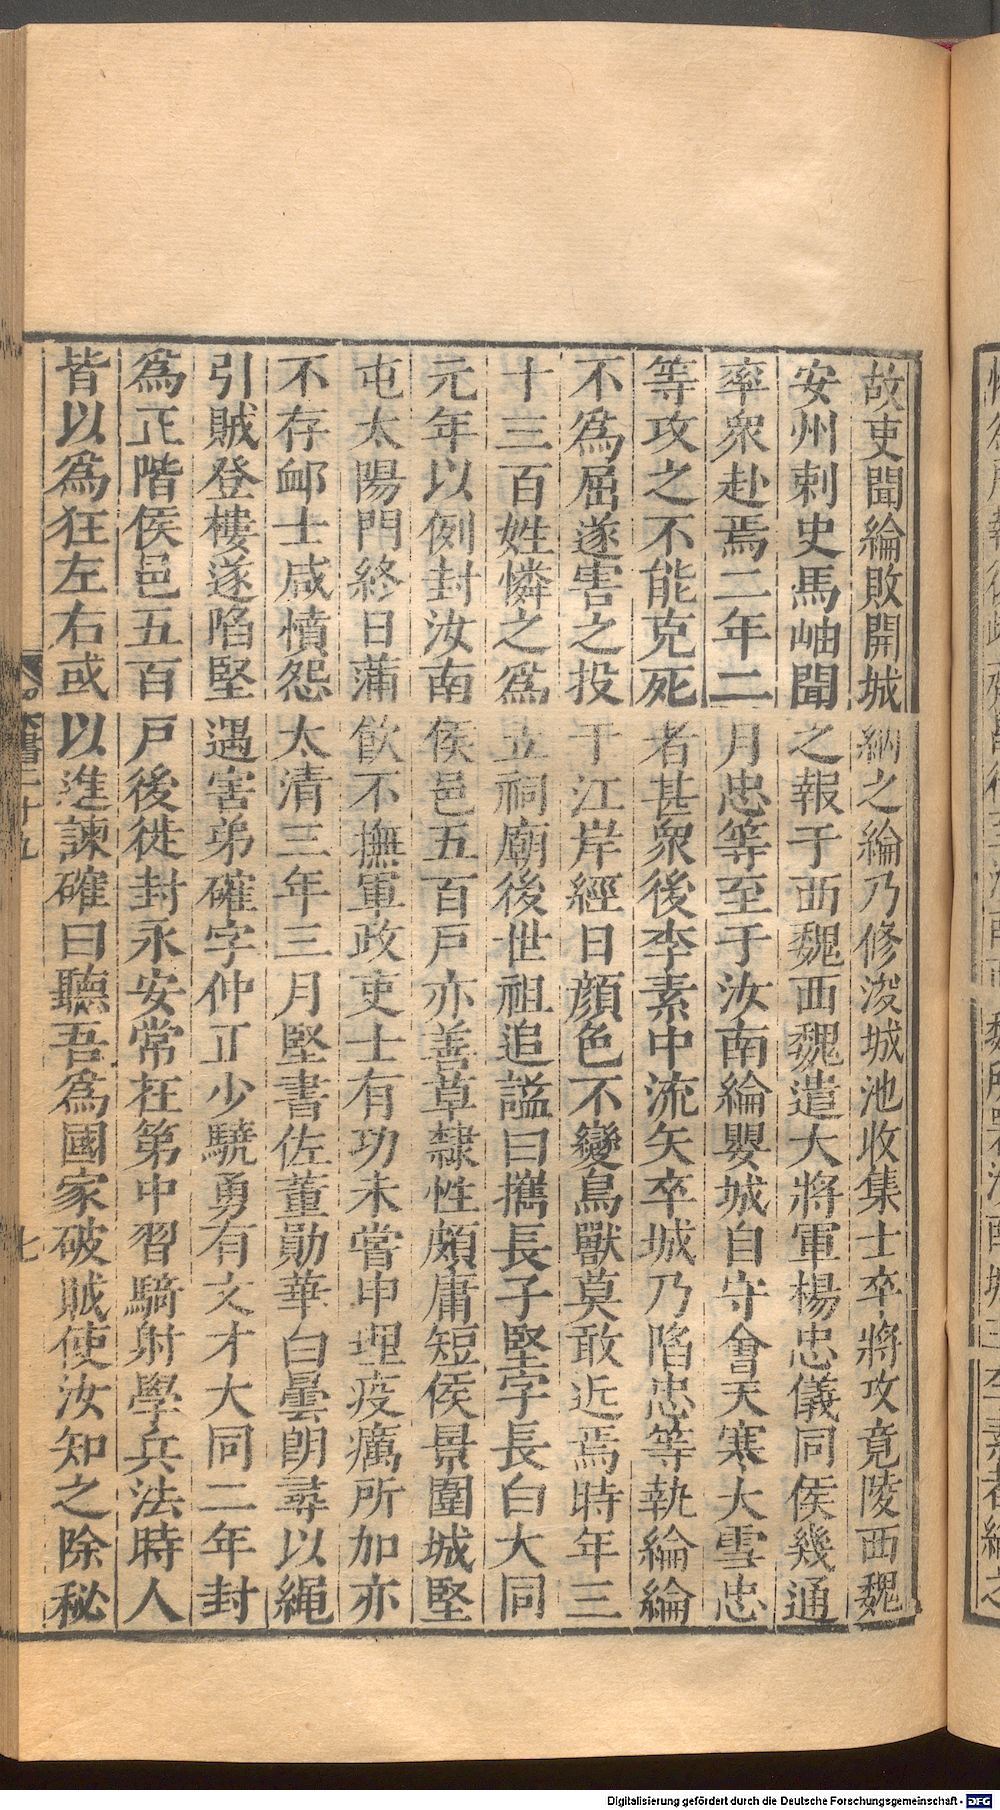 故吏聞綸敗開城納之綸乃修浚城池收集士卒將攻竟陵西魏
安州刺史馬岫聞之報于西魏西魏遣大將軍楊忠儀同侯幾通
率衆赴焉二年二月忠等至于汝南綸嬰城自守會天寒大雪忠
等攻之不能克死者甚衆後李素中流矢卒城乃陷忠等執綸綸
不爲屈遂害之投于江岸經日顔色不變鳥獸莫敢近焉時年三
十三百姓憐之爲立祠廟後世祖追諡曰攜長子堅字長白大同
元年以例封汝南侯邑五百戸亦善草隸性頗庸短侯景圍城堅
屯太陽門終日蒲飲不撫軍政吏士有功未嘗申理疫癘所加亦
不存䘏士咸憤怨太清三年三月堅書佐董勛華白曇朗尋以繩
引賊登樓遂陷堅遇害弟確字仲正少驍勇有文才大同二年封
爲正階侯邑五百戸後徙封永安常在第中習騎射學兵法時人
皆以爲狂左右或以進諫確曰聽吾爲國家破賊使汝知之除秘
書二十九
七
Digitalisierung gefördert durch die Deutsche Forschungsgemeinschaft - DFG